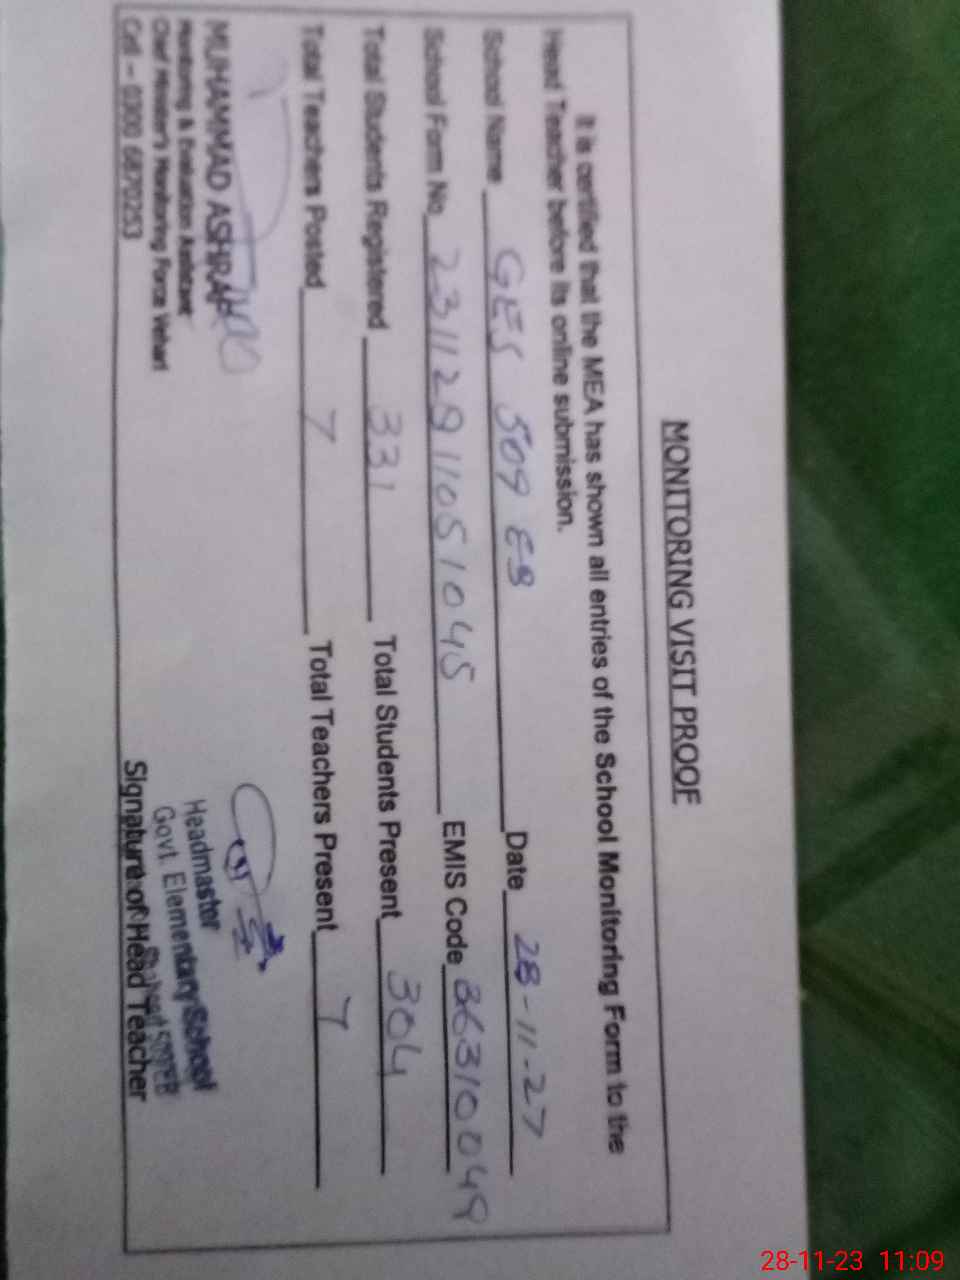 MONITORING VISIT PROOF
It is certified that the MEA has shown all entries of the School Monitoring Form to the
Head Teacher before its online submission.
School Name GES 509 EB Date 28-11-27
School Form No. 23112811051045 EMIS Code 36310049
Total Students Registered 331 Total Students Present 304
Total Teachers Posted 7 Total Teachers Present 7
MUHAMMAD ASHRAF
Monitoring & Evaluation Assistant
Chief Minister's Monitoring Force Vehari
Cell - 0300 6870253
Headmaster
Govt. Elementary School
509/EB
Signature of Head Teacher
28-11-23 11:09